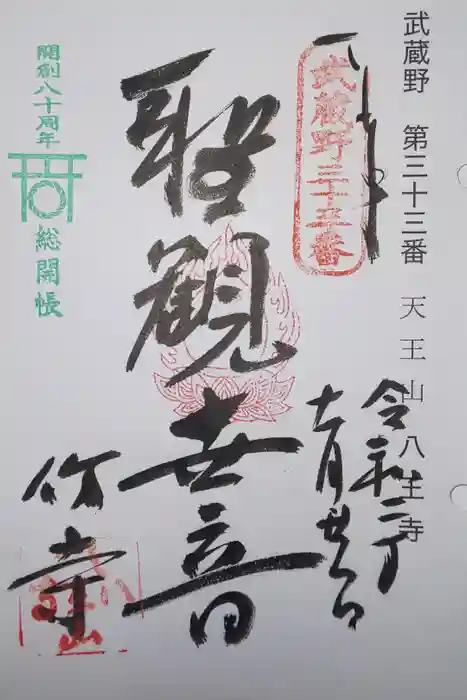 武蔵野 第三十三番 天王山 八王寺
令和二年
武蔵野三十三番
聖観世音
開創八十周年
総開帳
竹寺